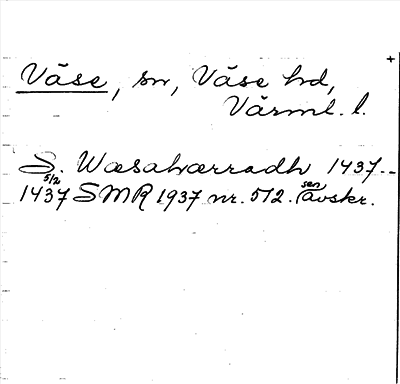 Väse, sn, Väse hd,
Värml. l.
S. Wæsahærradh 1437--
5/2 sen
1437 SMR 1937 nr. 512. avskr.